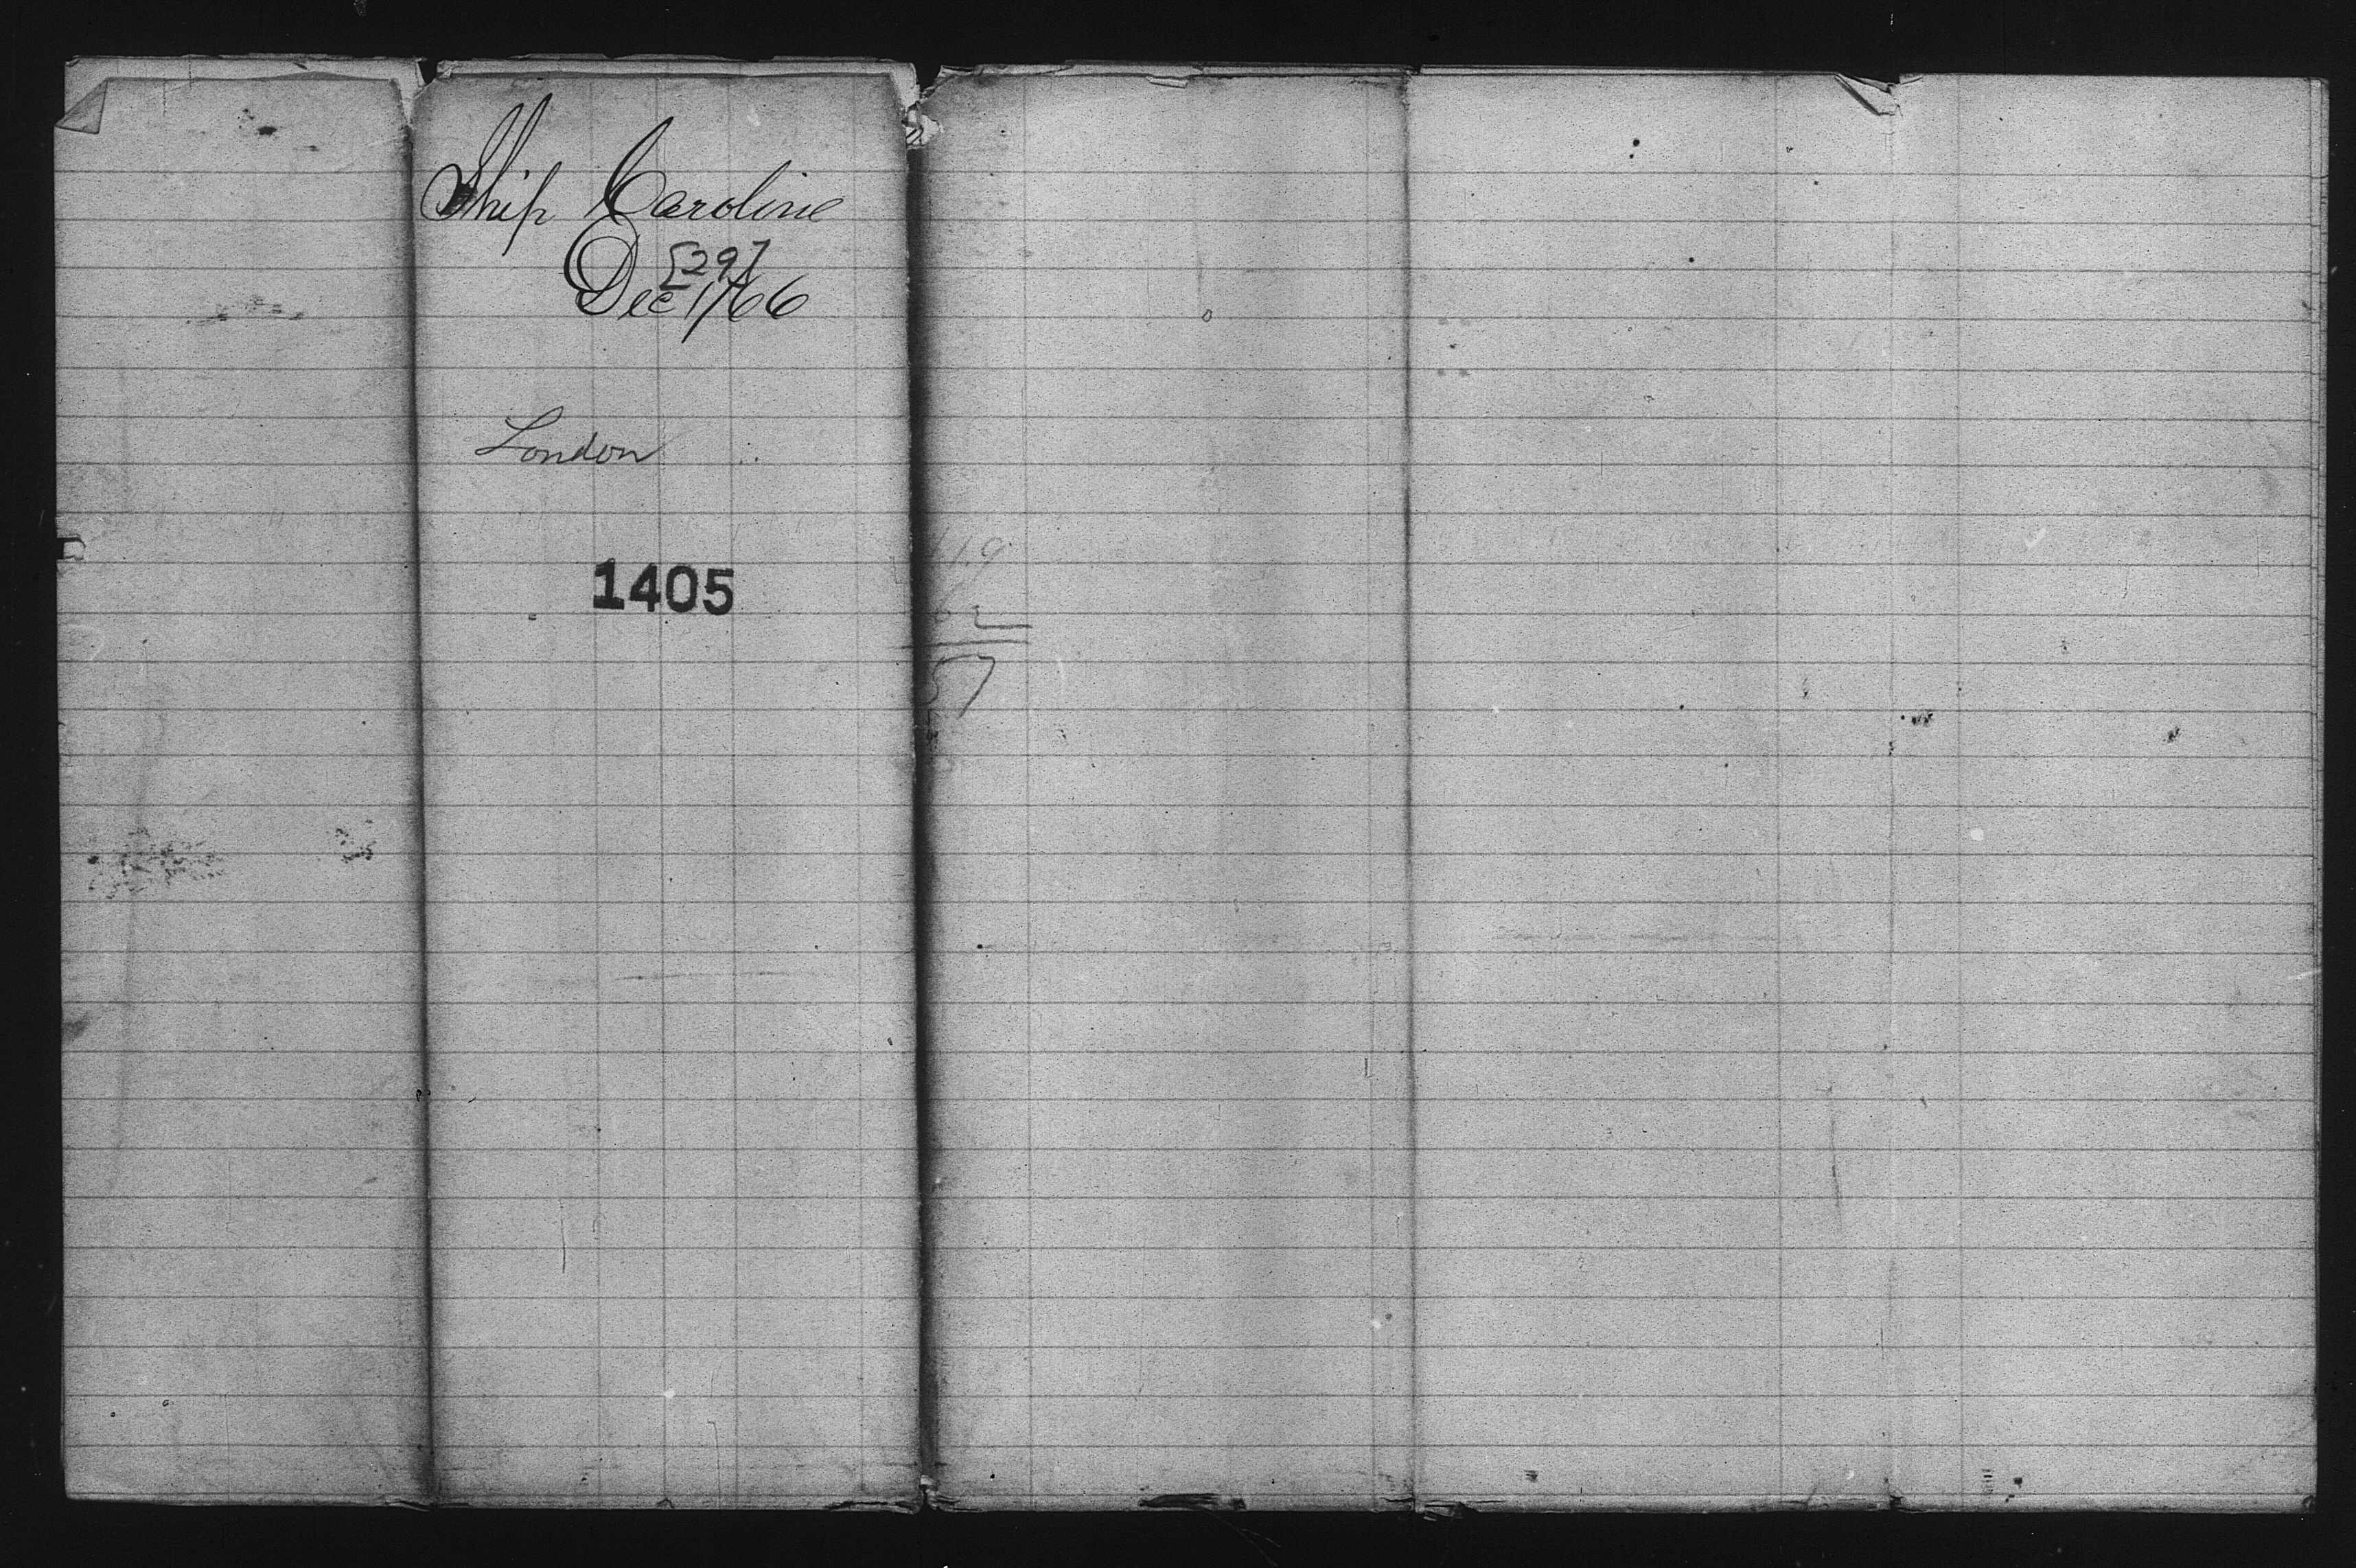 Ship Caroline
[29]
Dec 1/66
London
1405